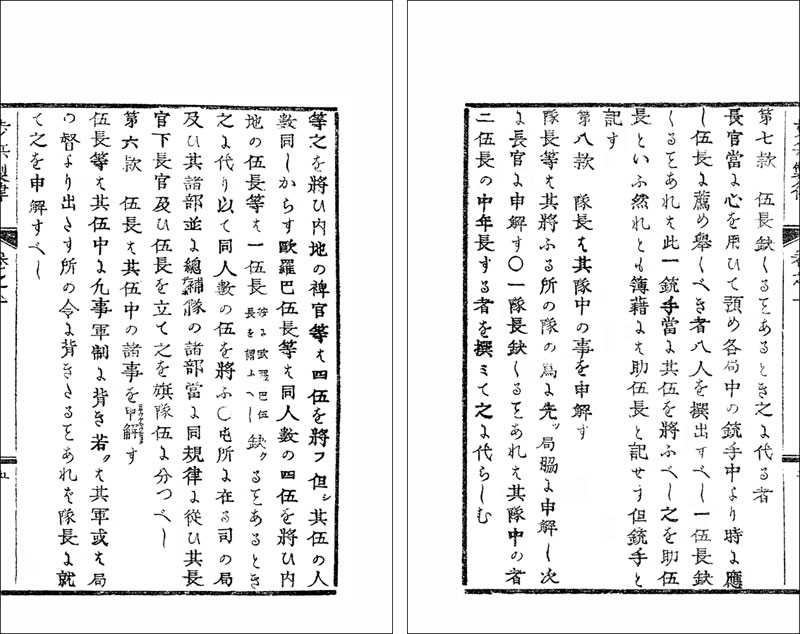 等之を將ひ内地の裨官等は四伍を將フ但シ其伍の人
數同しからす歐羅巴伍長等は同人數の四伍を將ひ内
地の伍長等は一伍長 歐羅巴伍長を謂ふへし 缺クることあるとき
之に代り以て同人數の伍を將ふ〇屯所に在る司の局
及ひ其諸部並に總補隊の諸部當に同規律に從ひ其長
官下長官及ひ伍長を立て之を旗隊伍に分つへし
第六款　伍長は其伍中の諸事を申解す
伍長等は其伍中に凡事軍制に背き若クは其軍或は局
の督より出さす所の令に背きさることあれは隊長に就
て之を申解すへし
五
第七款　伍長缺くることあるとき之に代る者
長官當に心を用ひて預め各局中の銃手中より時に應
し伍長に薦め擧くべき者八人を撰出すへし一伍長缺
くることあれは此一銃手當に其伍を將ふへし之を助伍
長といふ然れとも簿藉には助伍長と記せす但銃手と
記す
第八款　隊長は其隊中の事を申解す
隊長等は其將ふる所の隊の爲に先ッ局脇に申解し次
に長官に申解す〇一隊長缺くることあれは其隊中の者
二伍長の中年長する者を撰ミて之に代らしむ